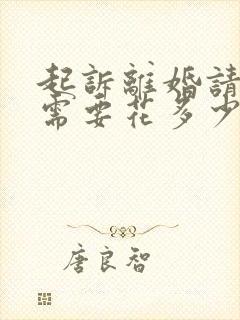 起訴離婚請
需要花多少
唐良智